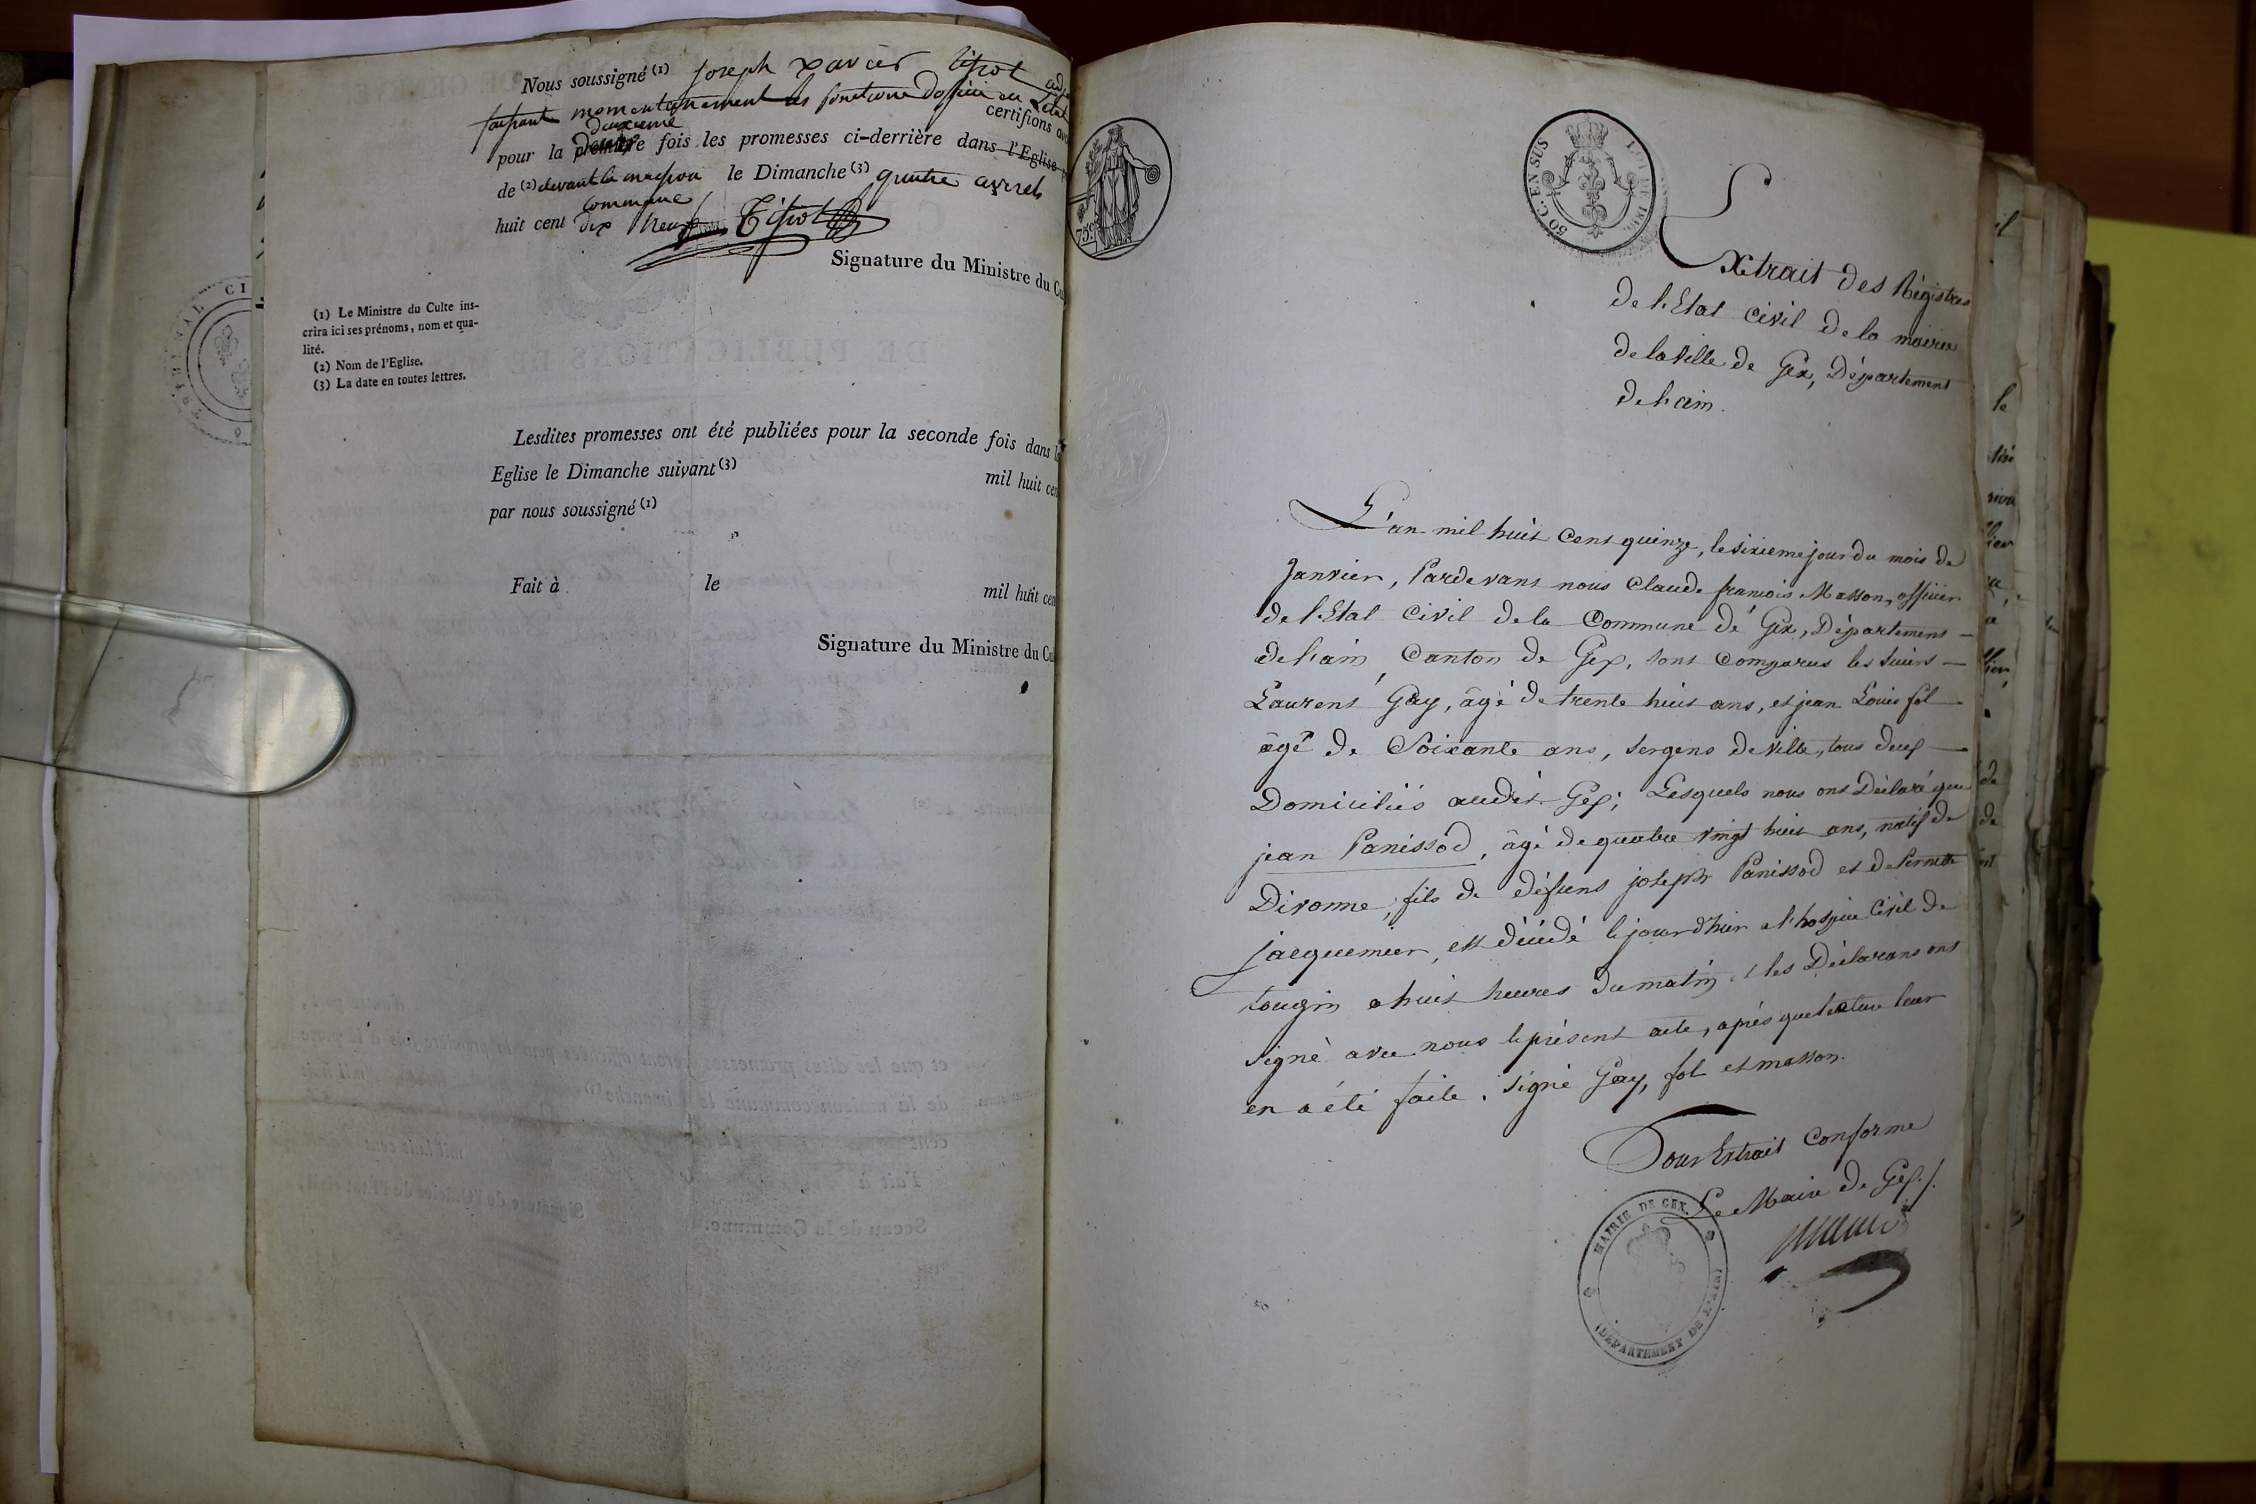 Nous soussigné (1) joseph xavier Tissot adj
faisant momentanement les fonctions dofficier en Letat
certifions av
deuxieme
pour la première fois les promesses ci-derrière dans l'Eglise p
de (2) devant la maison le Dimanche (3) quatre avril
commune
huit cent dix neuf Tissot
Signature du Ministre du Cu
(1) Le Ministre du Culte ins-
crira ici ses prénoms, nom et qua-
lité.
(2) Nom de l'Eglise.
(3) La date en toutes lettres.
Lesdites promesses ont été publiées pour la seconde fois dans l
Eglise le Dimanche suivant (3) mil huit cen
par nous soussigné (1)
Fait à le mil huit cen
Signature du Ministre du Cu
75c
50 C. EN SUS
LOI DE 1816
Extrait des Régistres
de l'Etat civil de la mairie
de la Ville de Gex, Département
de l'ain.
L'an mil huit cent quinze, le sixieme jour du mois de
Janvier, Pardevant nous Claude françois Masson, officier
de l'Etat Civil de la Commune de Gex, Département
de l'ain, Canton de Gex, sont comparus les sieurs
Laurent Gay, âgé de trente huit ans, et jean Louis fol
âgé de Soixante ans, sergens de ville, tous deux
Domiciliés audit Gex; Lesquels nous ont Déclaré que
jean Panissod, âgé de quatre vingt huit ans, natif de
Divonne, fils de défunt joseph Panissod et de Pernette
jacquemier, est décédé le jour d'hier a l'hospice Civil de
tougin a huit heures du matin, et les Déclarans ont
signé avec nous le présent acte, après que lecture leur
en a été faite. signé Gay, fol et masson.
Pour Extrait Conforme
Le Maire de Gex./.
MAIRIE DE GEX.
(DEPARTEMENT DE L'AIN)